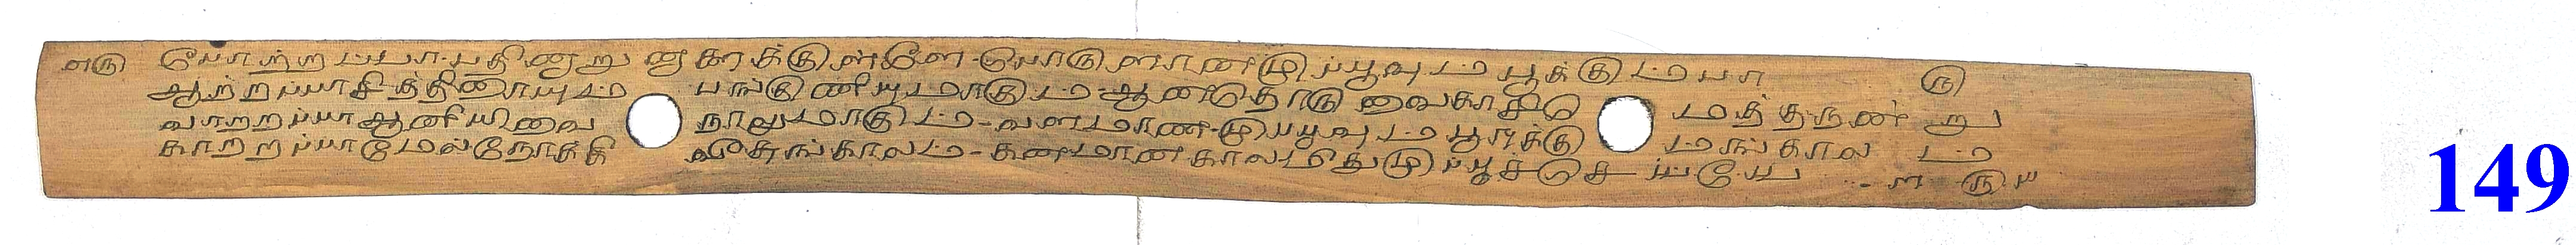 எரு போற்றப்பா பதினாறு னூகரக்குள்ளே - பொருளான முப்பூவும் பூக்கும்பா ரு
ஆற்றப்பா சித்திரையும் பங்குனியுமாகும் - ஆனதொரு வைகாசி மத்தநண் று
வாற்றப்பா ஆனியிவை நாலுமாகும் - வளமான முப்பூவும் பூர்க்கு மங்கால ம்
காற்றப்பா மேல்நோக்கி வீசுங்காலம் - கனமான காலமிது முப்பூச் செய்யே - ள ரு ௰
149